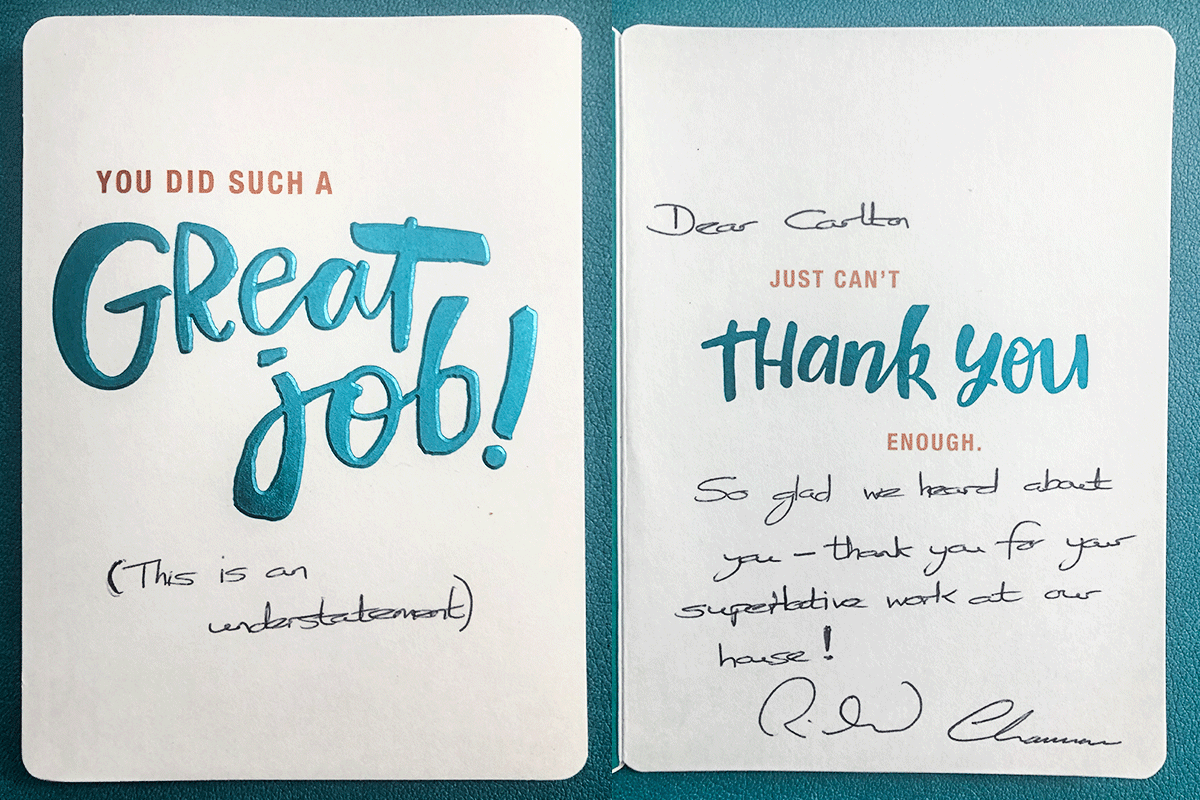 YOU DID SUCH A
GReat
job!
(This is an
understatement)
Dear Carlton
JUST CAN'T
tHank you
ENOUGH.
So glad we heard about
you – thank you for your
superlative work at our
house!